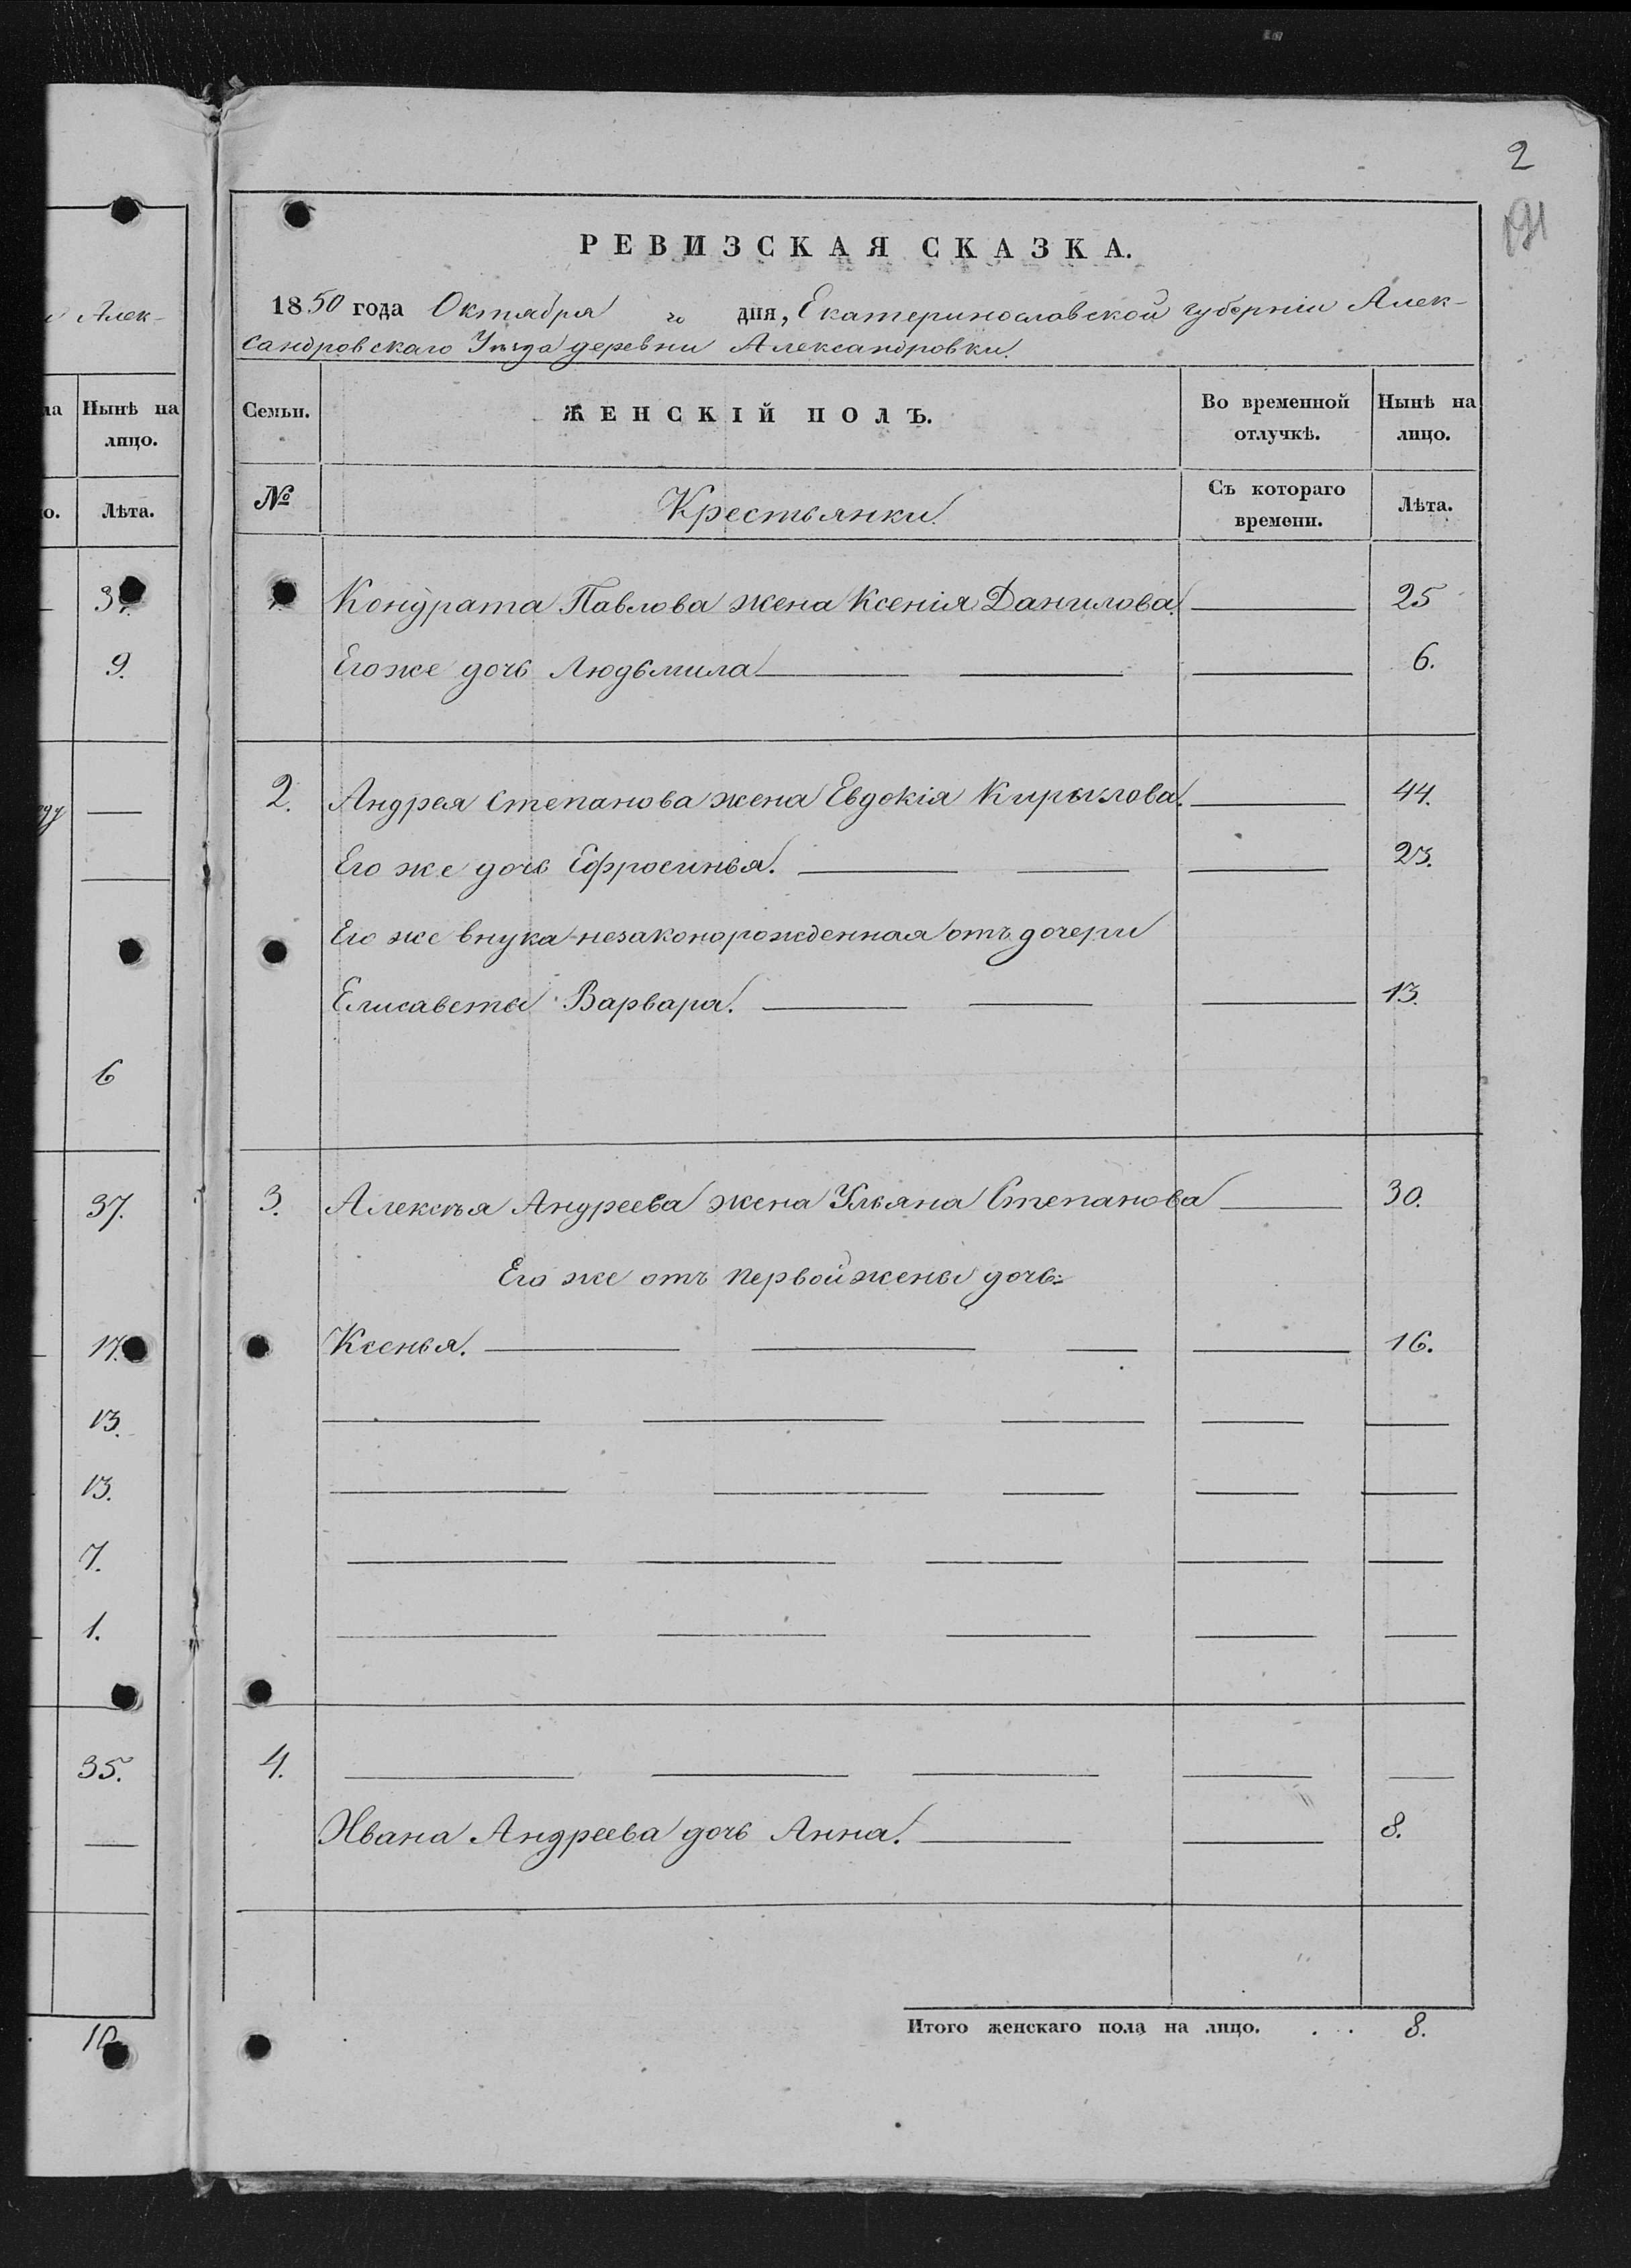 2
191
РЕВИЗСКАЯ СКАЗКА.
1850 года Октября го дня, Екатеринославской губерніи Алек-
сандровскаго Уѣзда деревни Александровки.
Семьи.
ЖЕНСКІЙ ПОЛЪ.
Во временной отлучкѣ.
Нынѣ на лицо.
№
Крестьянки
Съ котораго времени.
Лѣта.
Кондрата Павлова жена Ксенія Данилова. 25
Его же дочь Людьмила 6.
2. Андрея Степанова жена Евдокія Кирылова. 44.
Его же дочь Ефросинья. 23.
Его же внука незаконорожденная отъ дочери
Елисаветы Варвара. 13.
3. Алексѣя Андреева жена Ульяна Степанова 30.
Его же отъ первой жены дочь:
Ксенья. 16.
4.
Ивана Андреева дочь Анна. 8.
Итого женскаго пола на лицо. . . . 8.
Алек-
Нынѣ на
лицо.
Лѣта.
9.
6
37.
17.
13.
13.
7.
1.
35.